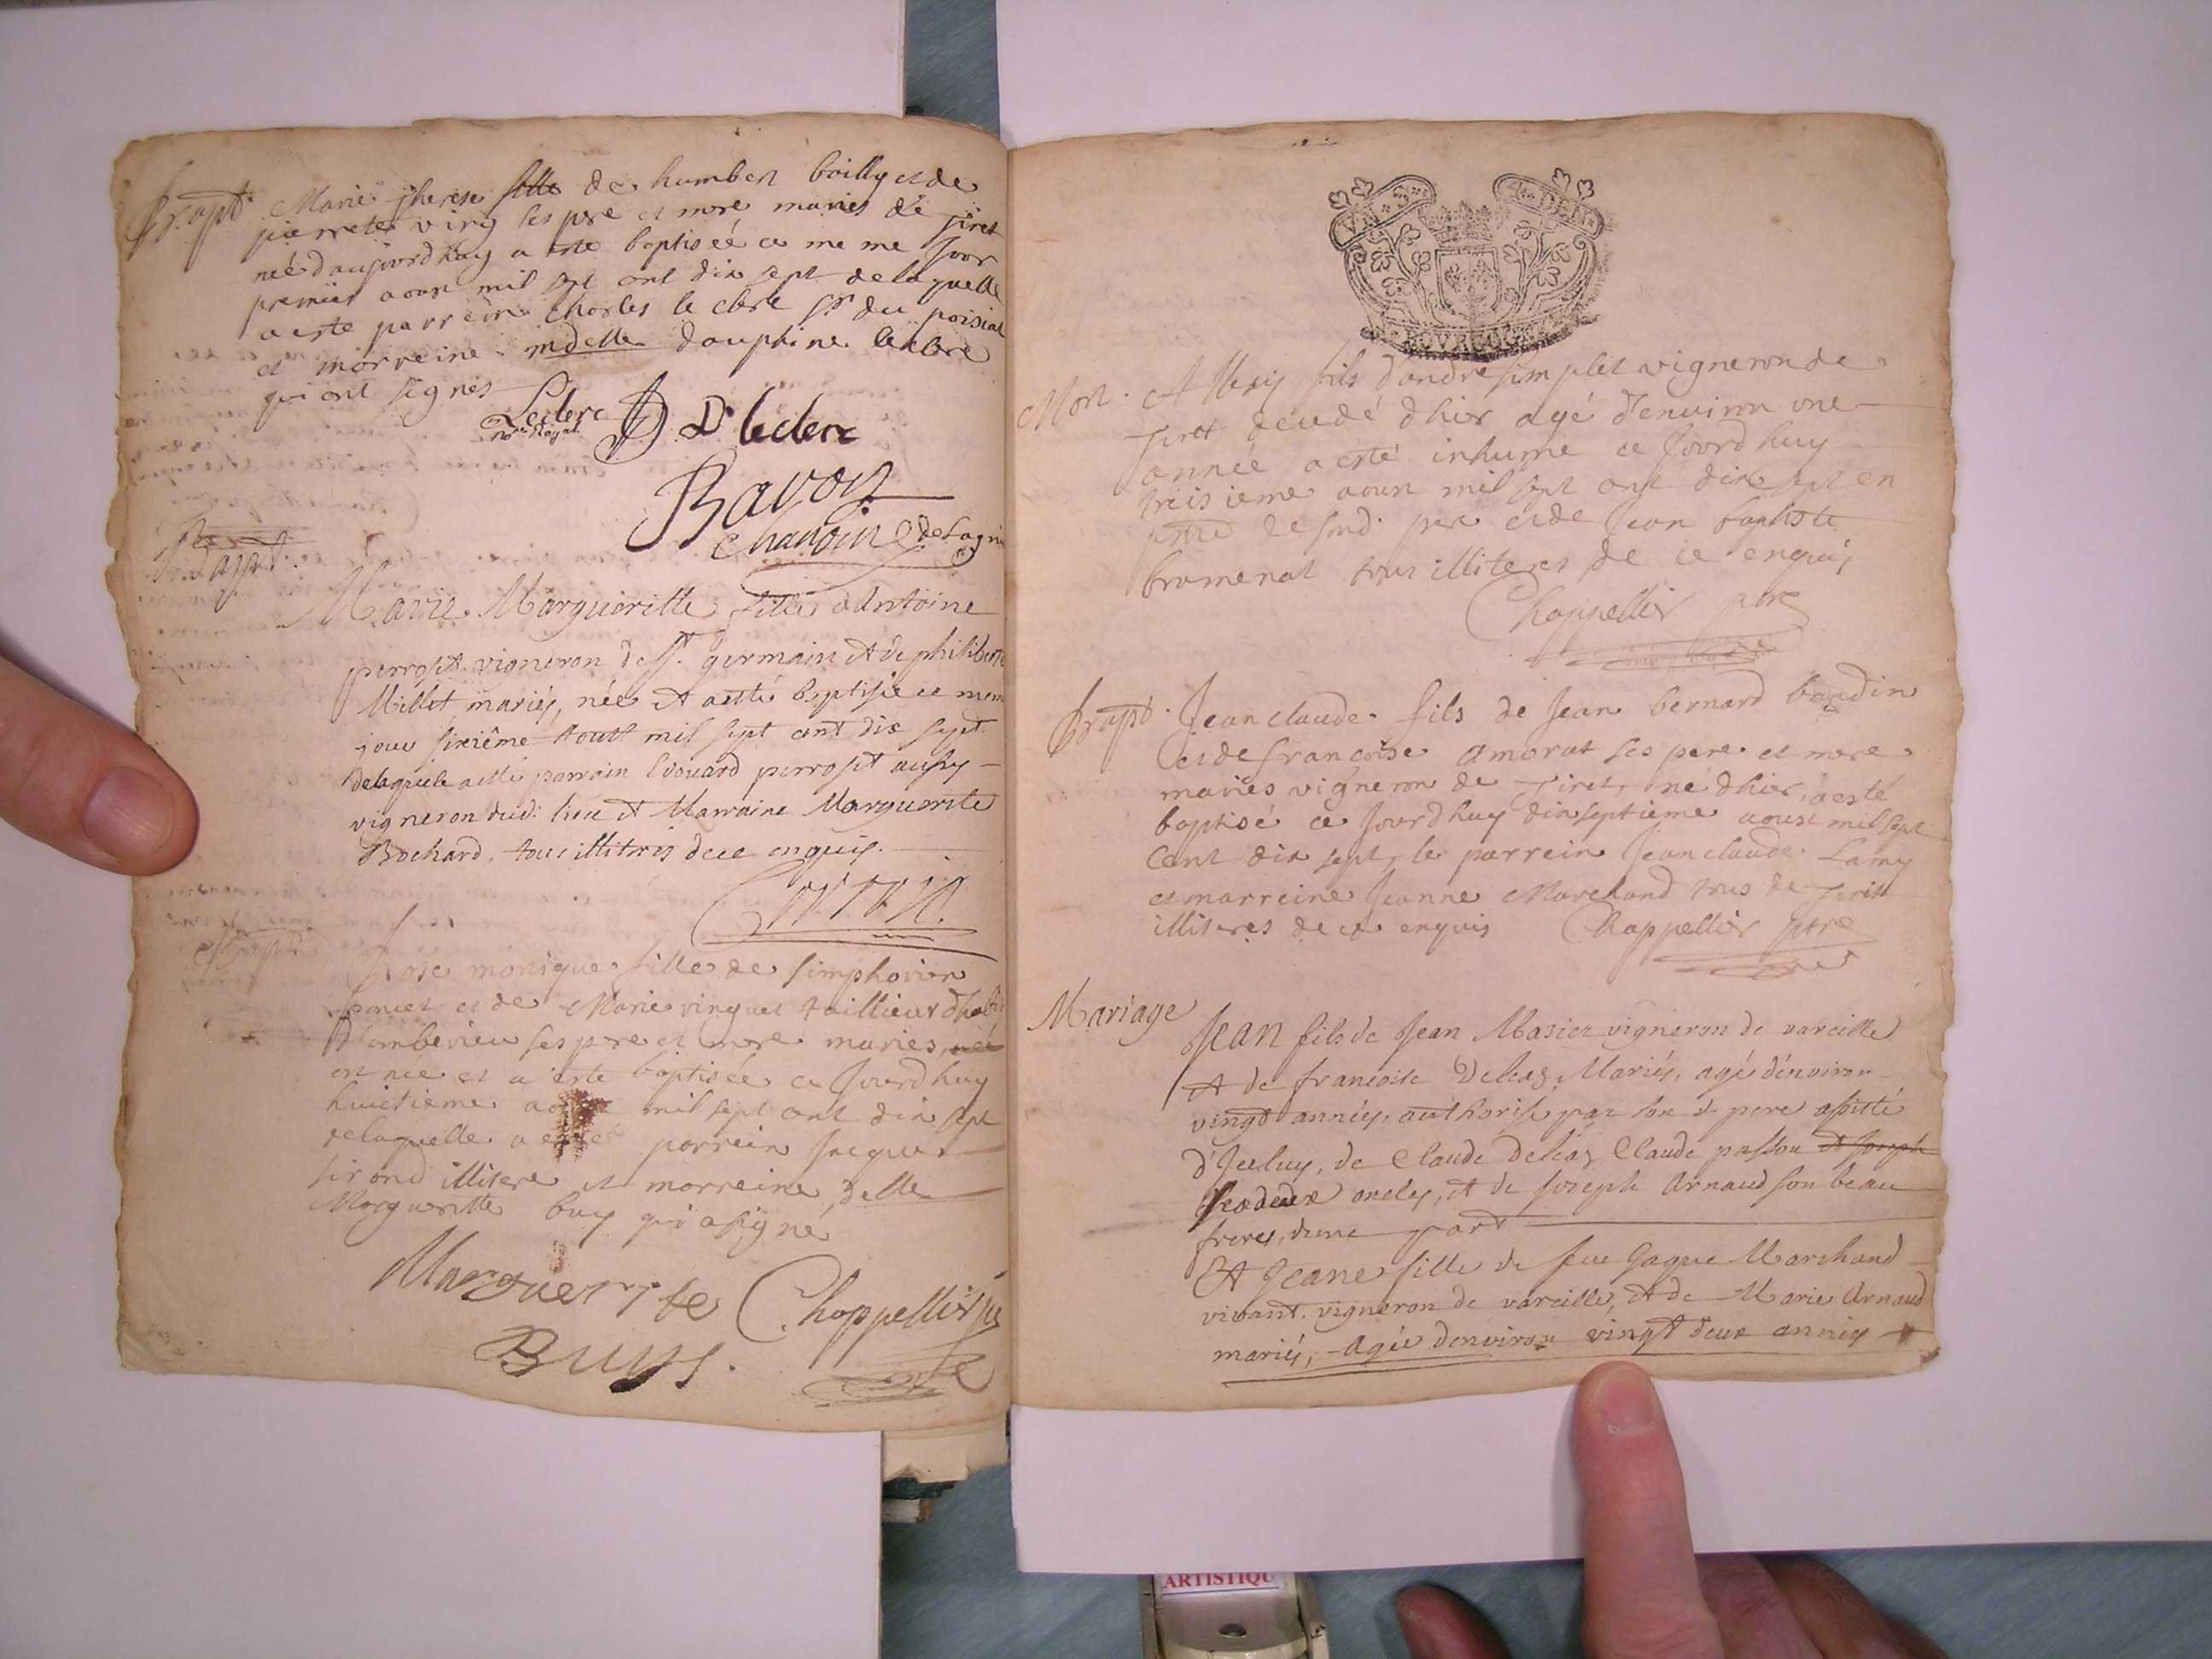 Bapt. Marie therese fille de humbert boilly et de
pierrette ving ses pere et mere mariés de Jiret
neé daujourdhuy a este baptiseé ce meme Jour
premier aoust mil sept cent dix sept de laquelle
a este parrein Charles le clerc Sr du poisiat
et marreine mdelle dauphine leclerc
qui ont signes
Leclerc
nre Royal
D leclerc
Bavoz
Chanoine de Lagni
Bapt.
Marie Margueritte fille dAntoine
perroset vigneron de St. germain et de philiberte
Millet mariés, née et a esté baptisée ce meme
jour sixiême aoust mil sept cent dix sept
delaquele a esté parrain Edouard perroset aussy
vigneron dud: lieu et Marraine Marguerite
Bochard, tous illiteris de ce enquis.
Bapt
Rose monique fille de simphorien
et de Marie vinguet taillieur dhabit
D'ambérieu ses pere et mere mariés, neé
est neé et a este baptiseé ce Jourdhuy
huictieme aoust mil sept cent dix sept
de laquelle a esté parrein Jacque
sirand illitere et marreine delle
Margueritte buy qui a signé
Marguerite
Buys.
Chappellier ptre
BOURGOGNE
Mort. Allexis fils dandré simplet vigneron de
Jiret decedé dhier agé d'environ une
année a esté inhumé ce Jourdhuy
treisieme aoust mil sept cent dix sept en
pnce de sond. pere et de Jean baptiste
bramenat tous illiteres de ce enquis
Chappellier ptre
Bapt. Jean claude fils de Jean bernard baudin
et de francoise amorat ses pere et mere
mariés vigneron de Jiret, né dhier, a esté
baptisé ce Jourdhuy dixseptieme aoust mil sept
Cent dix sept, le parrein Jean claude Lamy
et marreine Jeanne Marchand tous de Jiret
illiteres de ce enquis Chappellier ptre
Mariage
Jean fils de Jean Masier vigneron de vareille
et de francoise Deleaz Mariés, agé d'environ
vingt annéis, authorisé par son d. pere assisté
d'Jceluy, de Claude Deleaz Claude passou et Joseph
ses deux oncles, et de Joseph Arnaud son beau
frere, dune part
Et Jeane fille de feu Jaque Marchand
vivant vigneron de vareille, et de Marie Arnaud
mariés, Agée denviron vingt deux annéis
ARTISTIQU